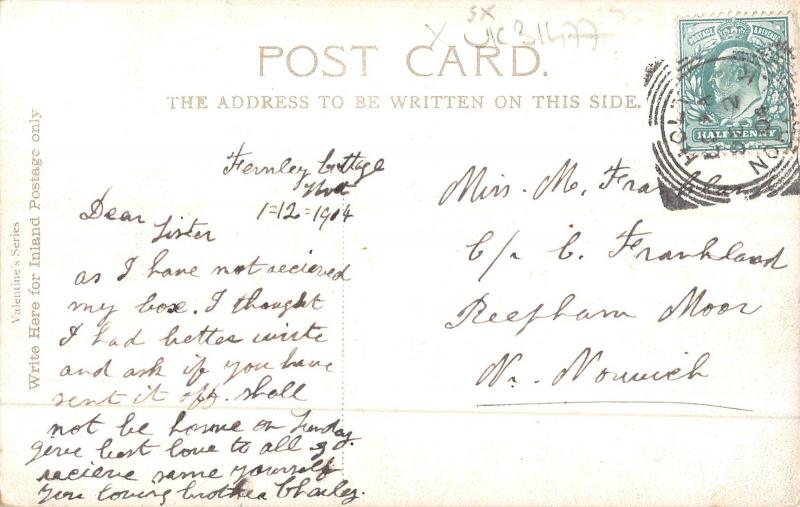 SX
UK31477
POST CARD.
THE ADDRESS TO BE WRITTEN ON THIS SIDE.
Valentine's Series
Write Here for Inland Postage only
POSTAGE & REVENUE
HALF PENNY
HOLT
NORTON
Fernley Cottage
Holt
1=12=1904
Dear
Sister
as I have not recieved
my box. I thought
I had better write
and ask if you have
sent it off. shall
not be home on Sunday.
give best love to all &
recieve same yourself
Your loving brother Charley.
Miss. M. Frankland
C/o C. Frankland
Reepham Moor
Nr. Norwich